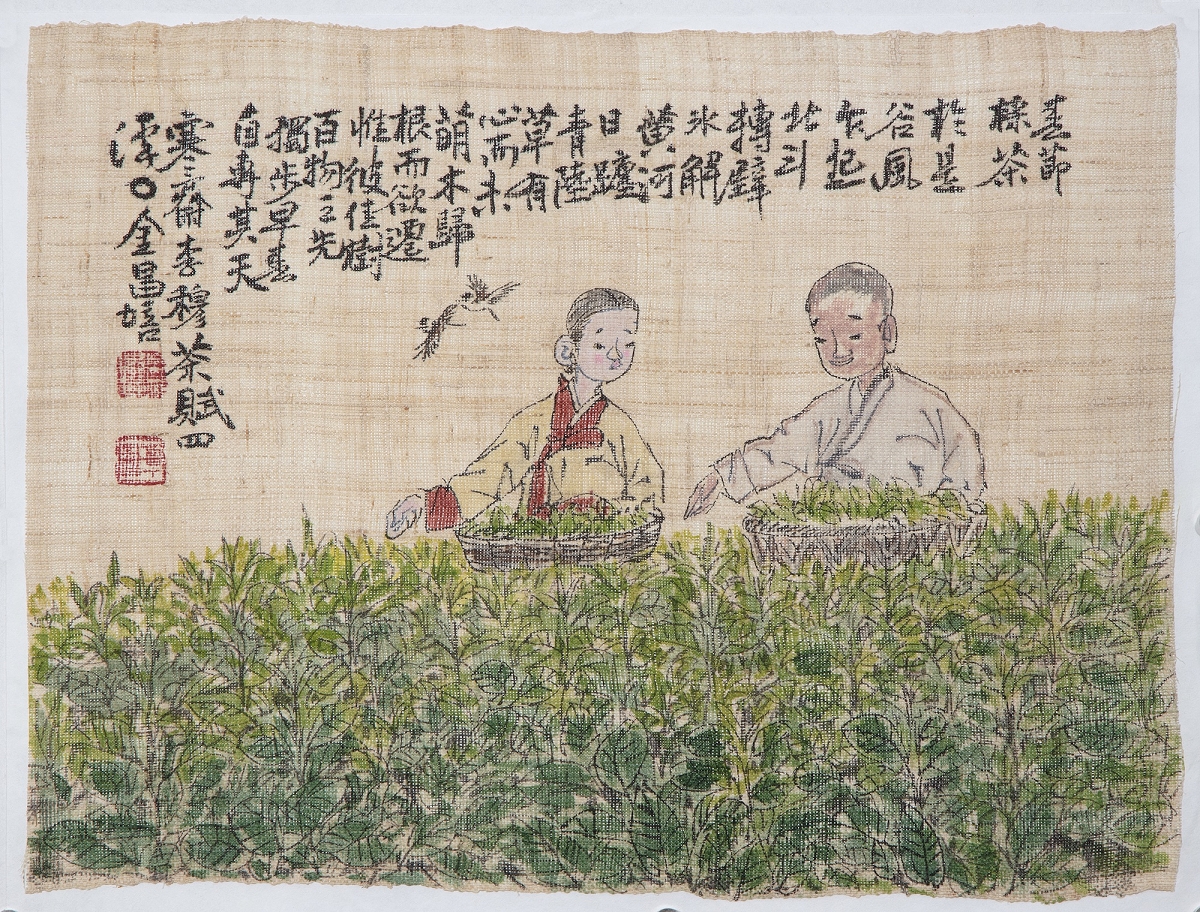 春節
採茶
於是
谷風
乍起
北斗
轉璧
氷解
黃河
日躔
青陸
草有
心而未
萌木歸
根而欲遷
惟彼佳樹
百物之先
獨步早春
自專其天
寒齋李穆茶賦四
潭〇金昌培